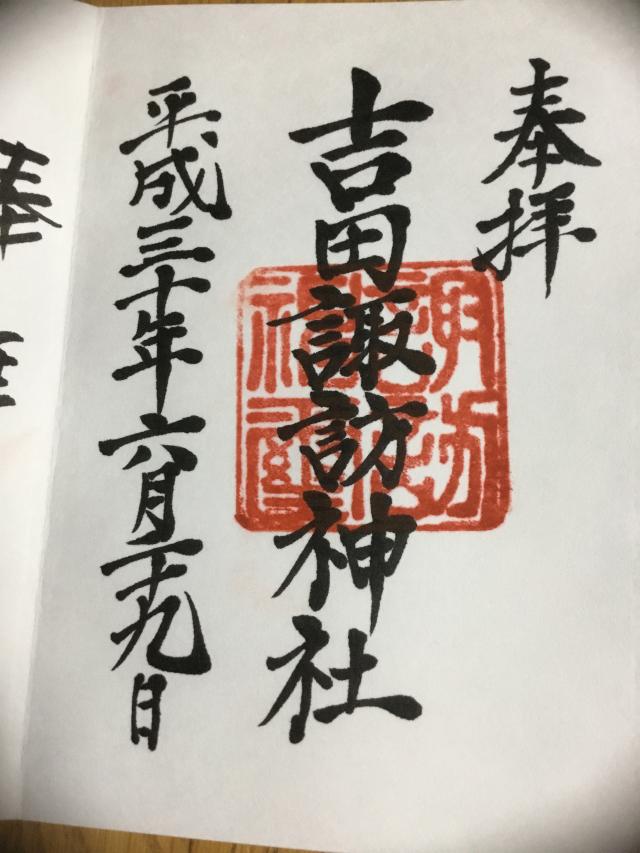 奉拝
吉田諏訪神社
平成三十年六月二十九日
奉